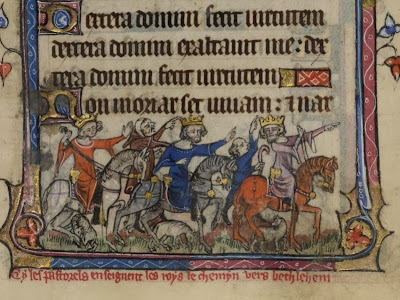 Dextera domini fecit uirtutem
dextera domini exaltauit me: dex
tera domini fecit uirtutem
Non moriar set uiuam: & nar
Cy les pastorels enseignent les roys le chemyn vers bethlehem